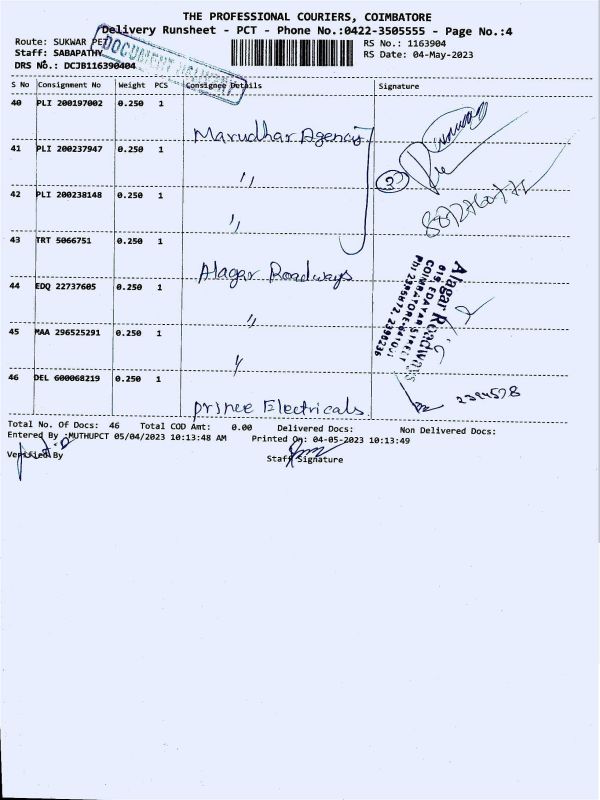 THE PROFESSIONAL COURIERS, COIMBATORE
Delivery Runsheet - PCT - Phone No.:0422-3505555 - Page No.:4
Route: SUKWAR PET
Staff: SABAPATHY
DRS No.: DCJB116390404
RS No.: 1163904
RS Date: 04-May-2023
DOCUMENT DELIVERY
S No Consignment No Weight PCS Consignee Details Signature
40 PLI 200197002 0.250 1 Marudhar Agency
41 PLI 200237947 0.250 1 "
42 PLI 200238148 0.250 1 "
3
43 TRT 5066751 0.250 1 Alagar Roadways
44 EDQ 22737605 0.250 1 "
45 MAA 296525291 0.250 1 "
46 DEL 600068219 0.250 1 prince Electricals
Alagar Roadways
619, EDAYAR STREET
COIMBATORE-641001
Ph: 2395872, 2396236
Total No. Of Docs: 46 Total COD Amt: 0.00 Delivered Docs: Non Delivered Docs:
Entered By :MUTHUPCT 05/04/2023 10:13:48 AM Printed On: 04-05-2023 10:13:49
Verified By
Staff Signature